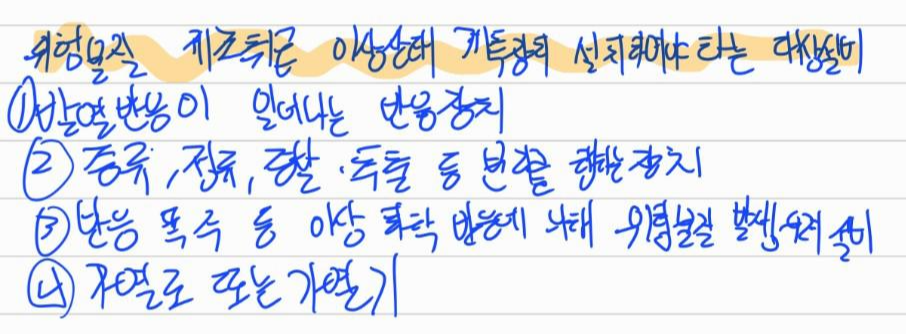 위험물질 제조취급 이상상태 계측장치 설치되어야 하는 대상설비
① 발열반응이 일어나는 반응장치
② 증류, 정류, 증발·추출 등 분리를 행하는 장치
③ 반응 폭주 등 이상 화학 반응에 의해 위험물질 발생우려 설비
④ 가열로 또는 가열기